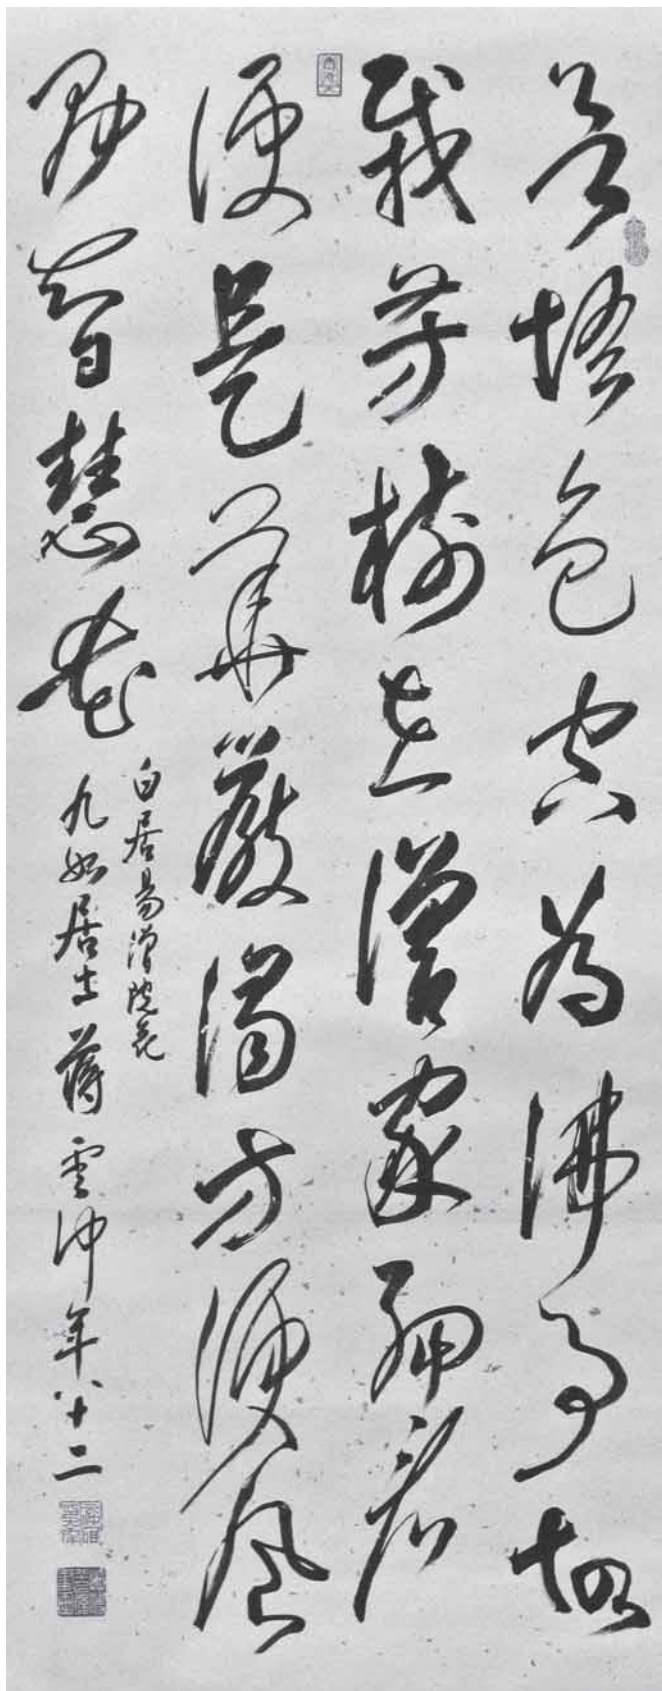 欲悟色空為佛事故
栽芳樹在僧家細看
便是華嚴偈方便風
開智慧花
白居易僧院花
九如居士蔣雲仲年八十二